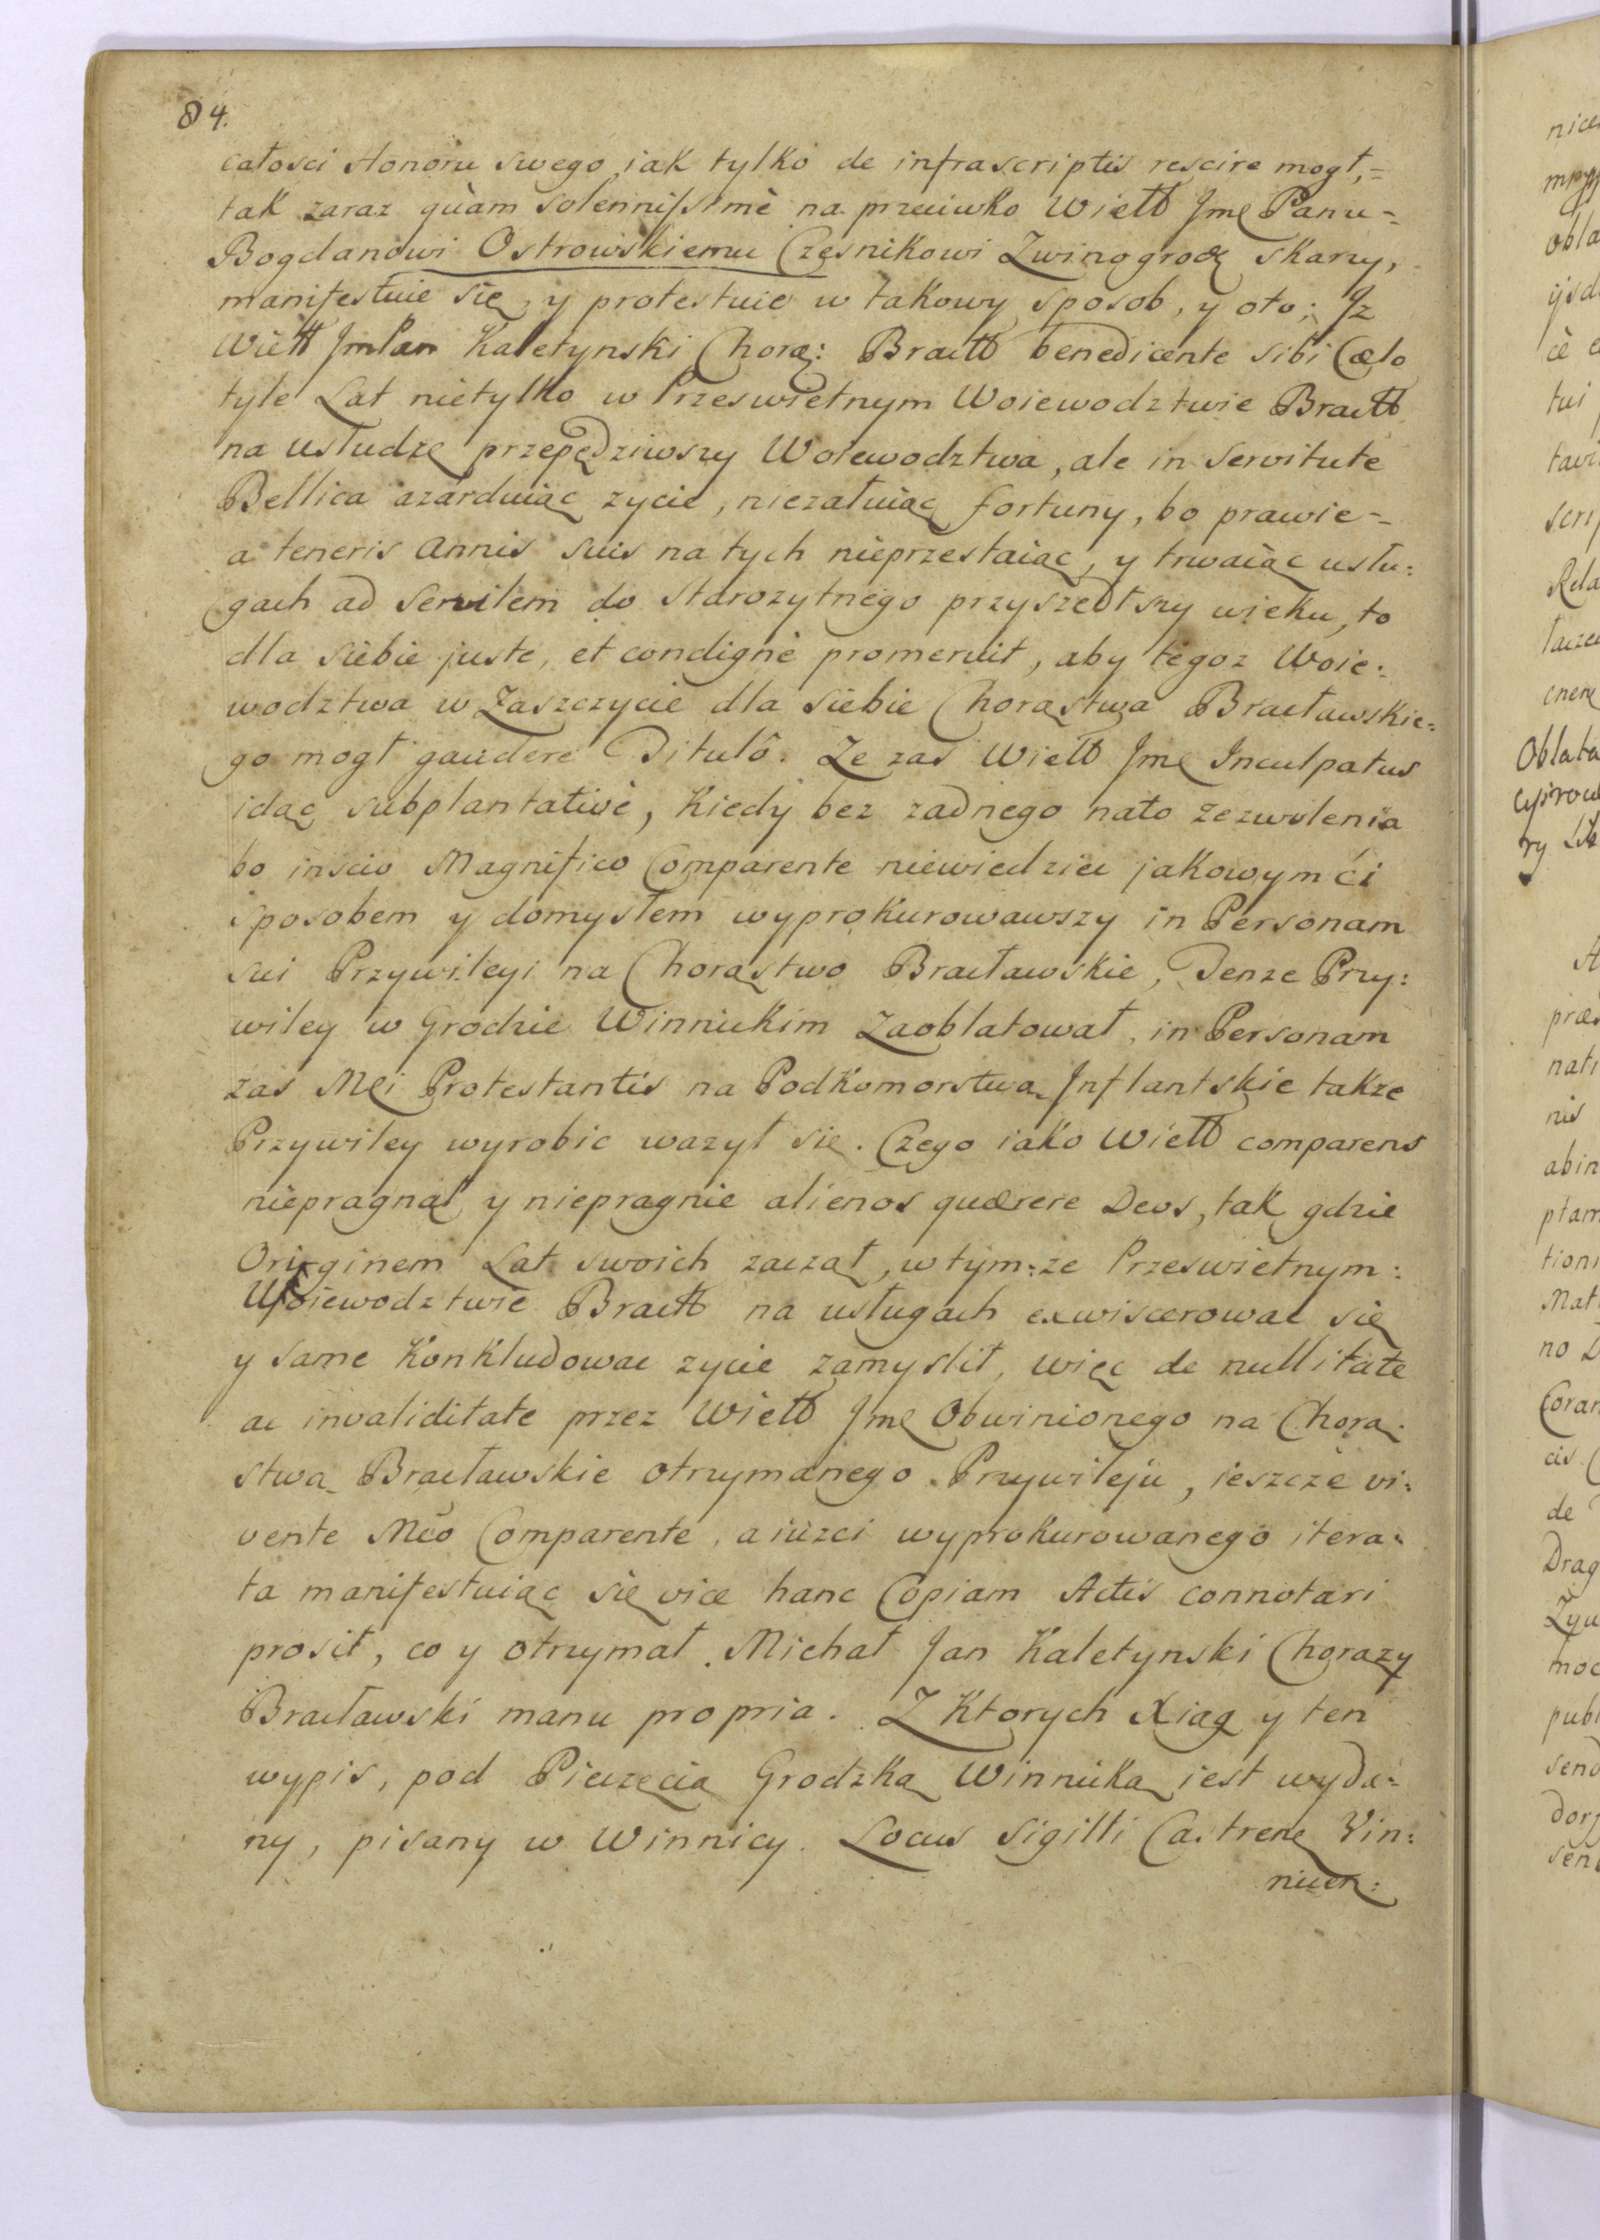 84.
całosci Honoru swego, iak tylko de infrascriptis rescire mogł,=
tak zaraz quàm solennissimè na przeciwko Wiełł Jmę Panu=
Bogdanowi Ostrowskiemu Częsnikowi Zwinogrodz skarzy,
manifestuie się, y protestuie w takowy sposob, y oto; Iz
Wiełł JmPan Kaletynski Chorą: Bracłł benedicente sibi Cælo
tyle Lat nietylko w Przeswietnym Woiewodztwie Bracłł
na usłudze przepędziwszy Woiewodztwa, ale in servitute
Bellica azarduiąc zycie, niezałuiąc fortuny, bo prawie=
a teneris annis suis na tych nieprzestaiąc, y trwaiąc usłu:
gach ad senilem do Starozytnego przyszedłszy wieku, to
dla siebie juste, et condignè promeruit, aby tegoz Woie:
wodztwa w Zaszczycie dla siebie Chorąstwa Bracławskie=
go mogł gaudere Titulô. Ze zas Wiełł Jmę Inculpatus
idąc subplantativè, kiedy bez zadnego nato zezwolenia
bo inscio Magnifico Comparente niewiedziec jakowymći
sposobem y domysłem wyprokurowawszy in Personam
sui Przywileyi na Chorąstwo Bracławskie, Tenze Przy:
wiley w Grodzie Winnickim zaoblatował, in Personam
zas Mci Protestantis na Podkomorstwa Inflantskie takze
Przywiley wyrobic wazył się. Czego iako Wiełł comparens
niepragnął y niepragnie alienos quærere Deos, tak gdzie
Originem Lat swoich zaczął, w tym:ze Przeswietnym:
Woiewodztwie Bracłł na usługach exwiscerowac się
y same konkludowac zycie zamyslił, więc de nullitate
ac invaliditate przez Wiełł Jmę Obwinionego na Chorą:
stwa Bracławskie otrzymanego Przywileju, ieszcze vi:
vente Mco Comparente, a iuzci wyprokurowanego itera:
ta manifestuiąc się vice hanc Copiam Actis connotari
prosił, co y otrzymał. Michał Jan Kaletynski Chorązy
Bracławski manu propria. Z Ktorych Xiąg y ten
wypis, pod Pieczęcią Grodzką Winnicką iest wyda=
ny, pisany w Winnicy. Locus Sigilli Castren Vin:
nicen: